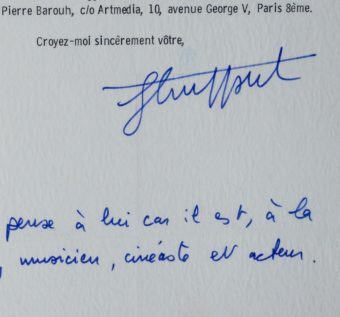 Pierre Barouh, c/o Artmedia, 10, avenue George V, Paris 8ème.
Croyez-moi sincèrement vôtre,
pense à lui car il est, à la
, musicien, cinéaste et acteur.